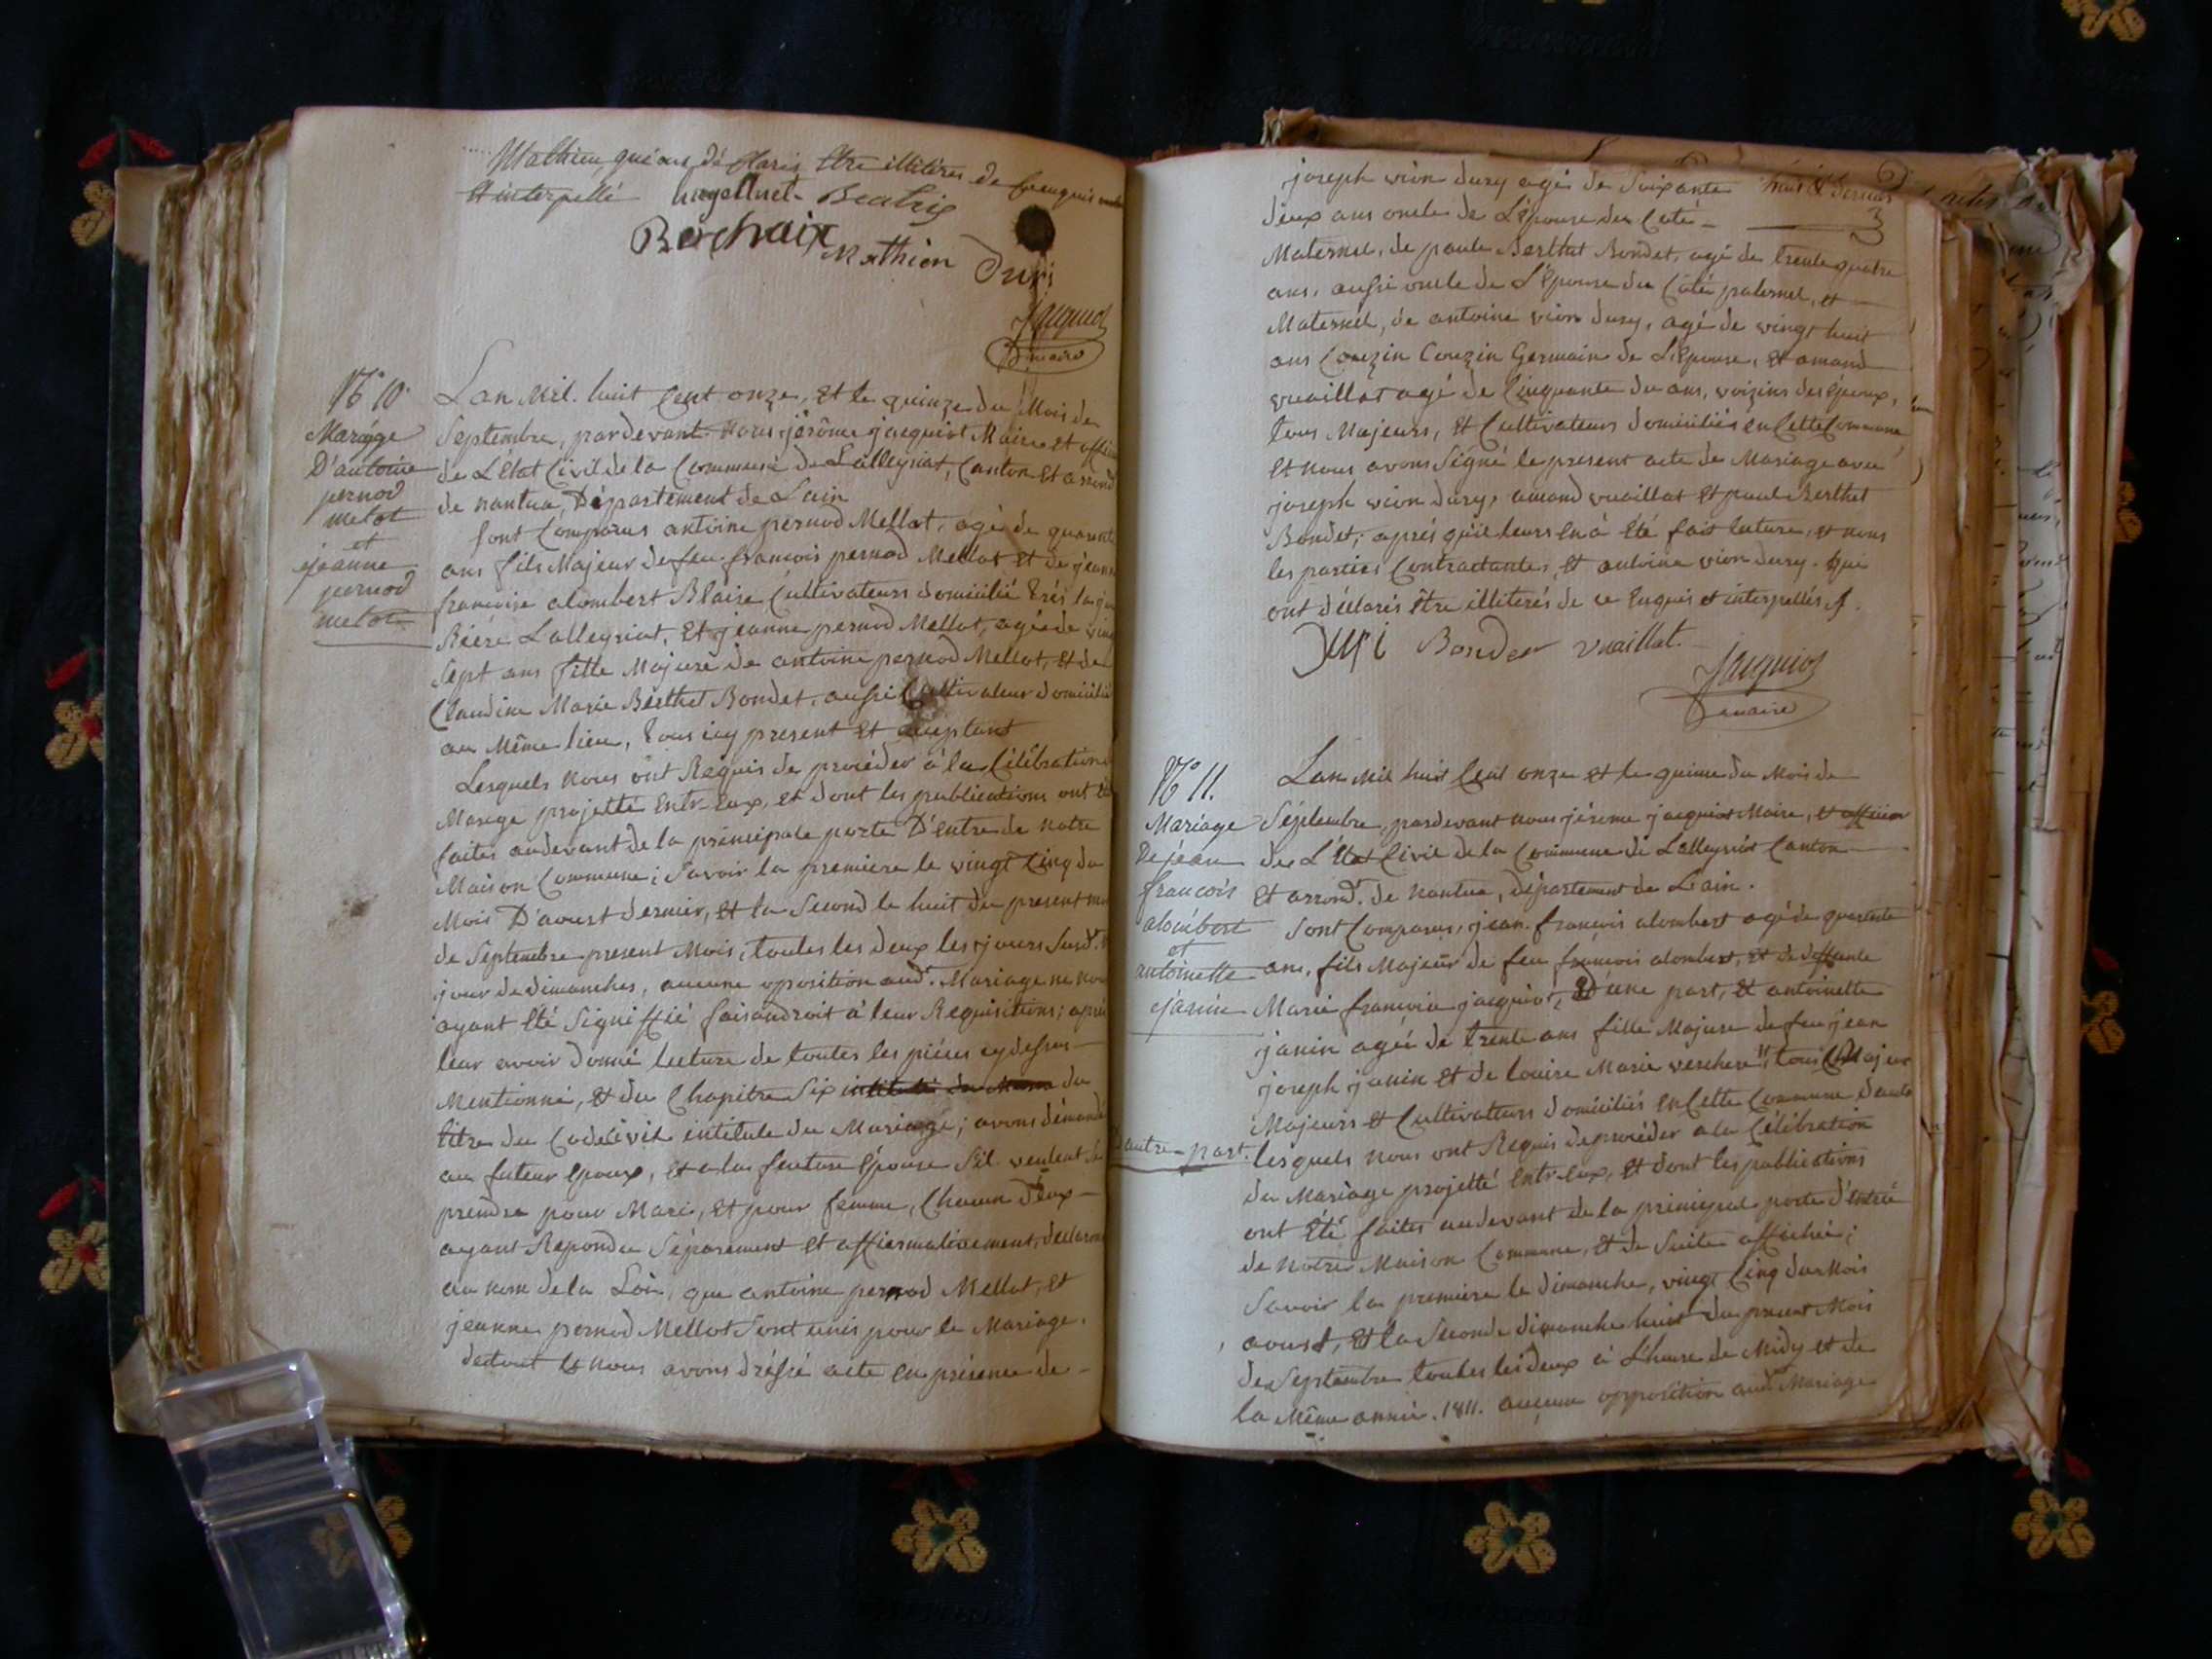 Mathieu, qui ont déclarés être illitéres de ce enquis
et interpellé
Berchaix
Mathieu Duri
Jacquiot
maire
N° 10.
Mariage
D'antoine
pernod
melot
et
jeanne
pernod
melot
Lan Mil. huit Cent onze, et le quinze du Mois de
Septembre, pardevant Nous jérôme jacquiot Maire et offi
de L'état Civil de la Commune de Lalleyriat, Canton et arrond
de nantua, Département de Lain
sont Comparus antoine pernod Mellot, agé de quarente
ans fils Majeur de feu francois pernod Mellot et de jeann
francoise alombert Blaise Cultivateurs domicilié
Lalleyriat, Et jeanne pernod Mellot, agée de ving
Sept ans fille Majure de antoine pernod Mellot, et de
Claudine Marie Berthet Bondet, aussi Cultivateur domicilié
au Même lieu, tous icy present et aceptant
Lesquels nous ont Requis de procéder à la Célébration
Mariage projetté Entr-Eux, et dont les publications ont été
faites audevant de la principale porte D'entre de notre
Maison Commune; Savoir la premiere le vingt Cinq du
Mois D'aoust dernier, et la Second le huit du present moi
de Septembre present Mois, toutes les deux les jours susdt.
jour de dimanches, aucune oposition aud. Mariage ne nou
ayant été Signiffié faisandroit à leur Requisitions; aprés
leur avoir donné lecture de toutes les piéces cydessus
Mentionné, et du Chapitre Six intitulé du du
titre du Codecivil intitule du Mariage; avons démandé
au futeur Epoux, et a la feuture Epouse Sil veulent Se
prendre pour Mari, et pour femme, Chacun d'eux
ayant Repondu Séparement et affiermativement, declarons
au nom de la Loi, que antoine pernod Mellot, et
jeanne pernod Mellot Sont unis pour le Mariage.
detout et nous avons dréssé acte en présence de
joseph vion dury agé de Soixante
deux ans oncle de L'épouse du Coté
Maternel, de paule Berthet Bondet, agé de trente quatre
ans, aussi oncle de L'Epouse du Coté paternel, et
Maternel, de antoine vion dury, agé de vingt huit
ans Couzin Couzin Germain de L'Epouse, et amand
vuaillat agé de Cinquante du ans, voizins des Epoux,
tous Majeurs, et Cultivateurs domiciliés en Cette Commune
et nous avons Signé le present acte de Mariage avec
joseph vion dury, amand vuaillat et paul Berthet
Bondet; aprés qu'il leurs en à été fait lecture, et nons
les parties Contractantes, et antoine vion dury. Qui
ont déclarés être illiterés de ce Enquis et interpellés
Duri Bondet vuaillat.
Jacquiot
maire
N° 11.
Mariage
De jéan
francois
aloimbert
et
antoinette
janin
Lan Mil huit Cent onze et le quinze du Mois de
Séptembre, pardevant nous jérome jacquiot Maire, et officier
de L'état Civil de la Commune de Lalleyriat Canton
Et arrond.t de nantua, département de Lain.
sont Comparus, jean. francois alombert agé de quarente
ans, fils Majeur de feu francois alombert, et de deffunte
Marie francoise jacquiot, D'une part, et antoinette
janin agée de trente ans fille Majure de feu jean
joseph janin et de louise Marie verchere, tous
Majeurs et Cultivateurs domiciliés en Cette Commune
d'autre part. lesquels nous ont Requis de procéder a la Célébration
du Mariage projetté Entr-Eux, et dont les publications
ont été faites audevant de la principal porte d'entrée
de notre Maison Commune, et de Suite affichée;
Savoir la premiere le dimanche, vingt Cinq du Mois
aoust, et la Seconde dimanche huit du present Mois
de Septembre toutes les deux à L'heure de Midy et de
la Même année. 1811. aucune opposition aud.t Mariage